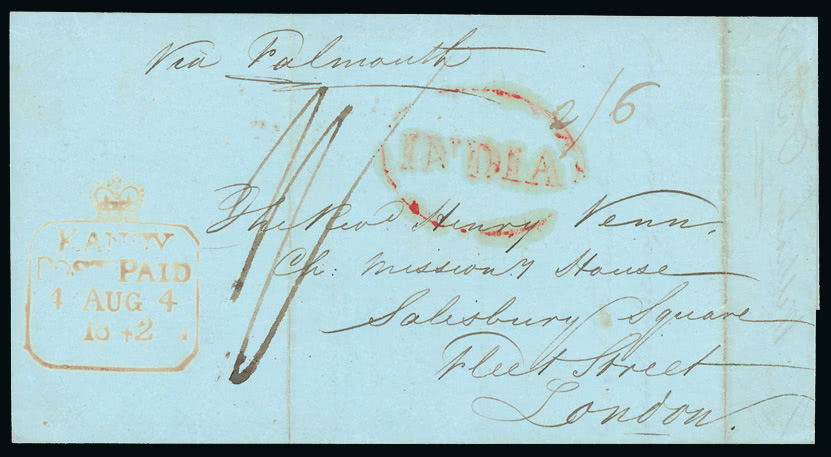 Via Falmouth
2/6
INDIA
KANDY
POST PAID
4 AUG 4
1842
The Revd. Henry Venn,
Ch: Missiony House
Salisbury Square
Fleet Street
London.